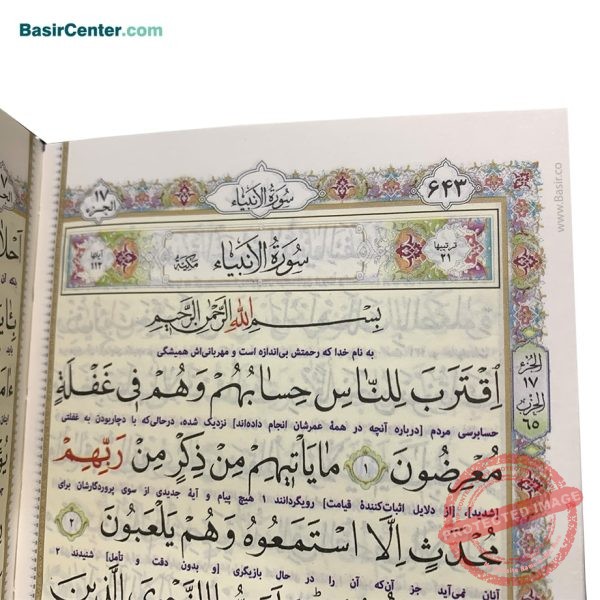 BasirCenter.com
١٧
الجزء
سورة الأنبياء
٦٤٣
www.Basir.co
آياتها
١١٢
سورة الأنبياء مكية
ترتيبها
٢١
بسم الله الرحمن الرحيم
به نام خدا که رحمتش بی‌اندازه است و مهربانی‌اش همیشگی
ٱقْتَرَبَ لِلنَّاسِ حِسَابُهُمْ وَهُمْ فِى غَفْلَةٍ
الجزء
١٧
الحزب
٦٥
حسابرسی مردم [درباره آنچه در همهٔ عمرشان انجام داده‌اند] نزدیک شده، درحالی‌که با دچاربودن به غفلتی
مُعْرِضُونَ ١ مَا يَأْتِيهِمْ مِنْ ذِكْرٍ مِنْ رَبِّهِمْ
[شدید]، [از دلایل اثبات‌کنندهٔ قیامت] رویگردانند ۱ هیچ پیام و آیهٔ جدیدی از سوی پروردگارشان برای
مُحْدَثٍ إِلَّا ٱسْتَمَعُوهُ وَهُمْ يَلْعَبُونَ ٢
آنان نمی‌آید جز آن‌که آن را در حال بازیگری [و بدون دقت و تأمل] شنیدند ۲
PROTECTED IMAGE